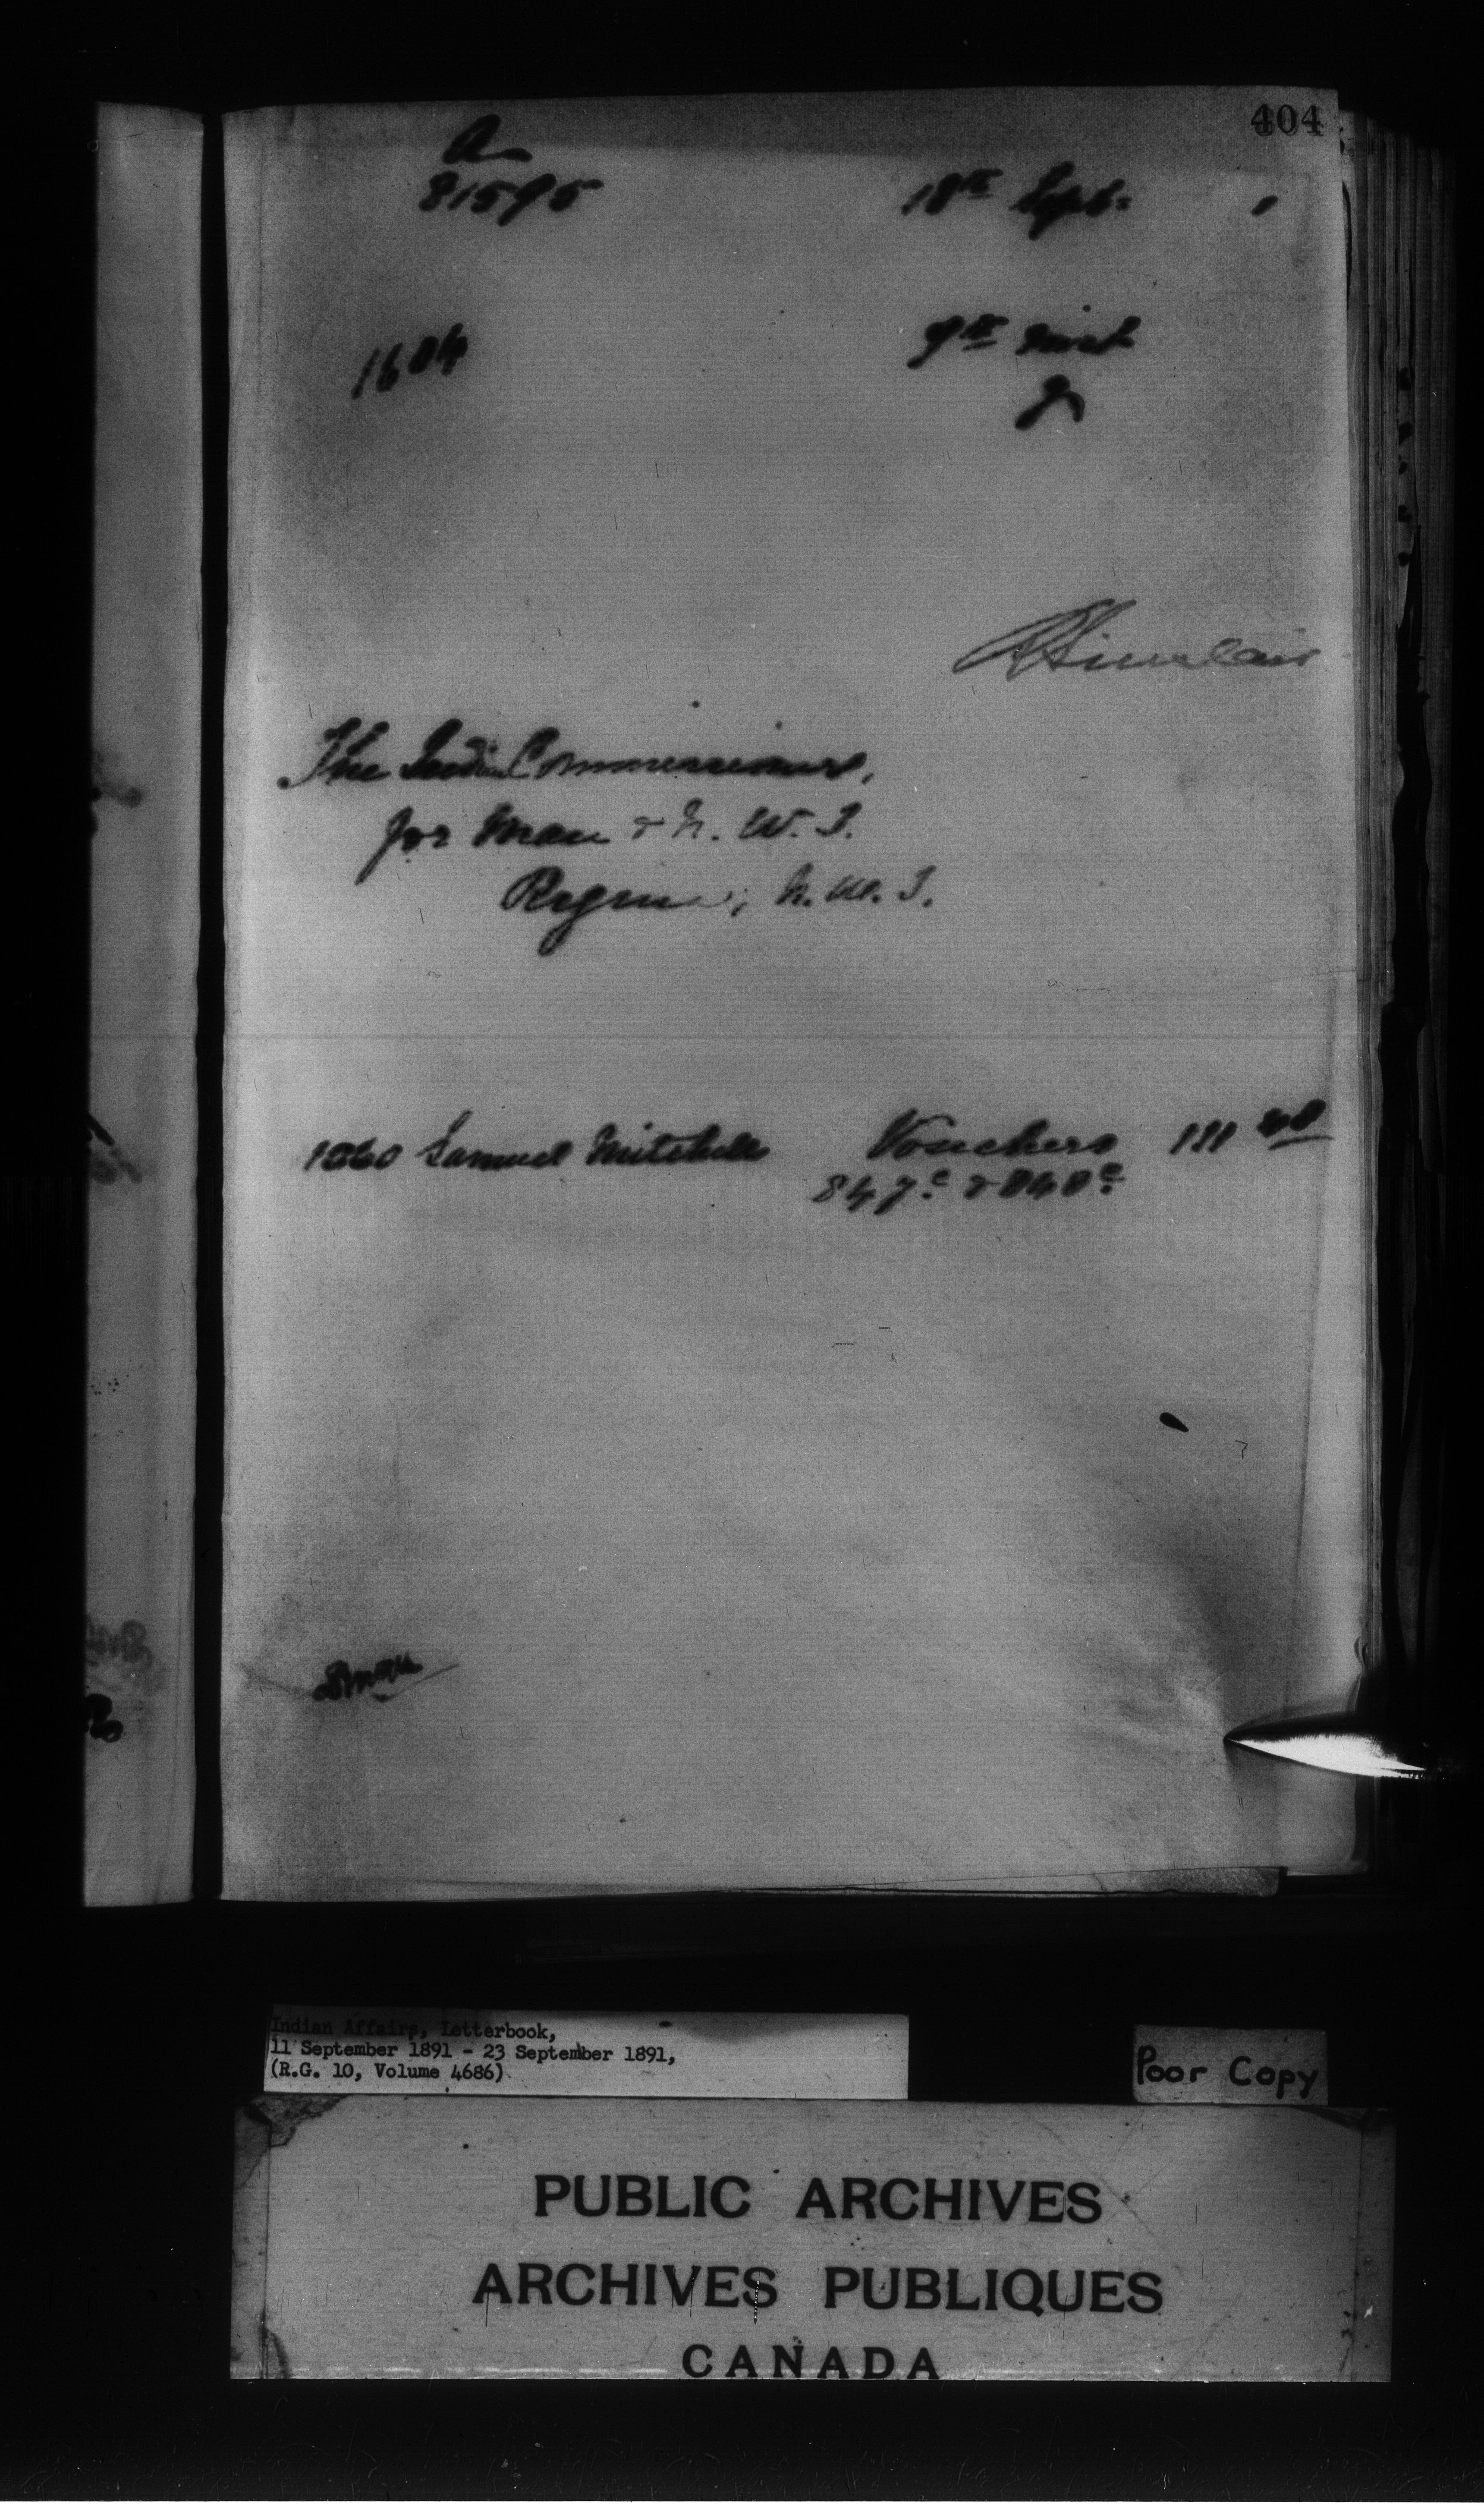 404
A
81595
18th Sept. 1
1604
9th inst
R Sinclair
The Indian Commissioner,
for Man & N. W. T.
Regina, N. W. T.
1060 Samuel Mitchell Vouchers 111
847c & 848c
Indian Affairs, Letterbook,
11 September 1891 - 23 September 1891,
(R.G. 10, Volume 4686)
Poor Copy
PUBLIC ARCHIVES
ARCHIVES PUBLIQUES
CANADA